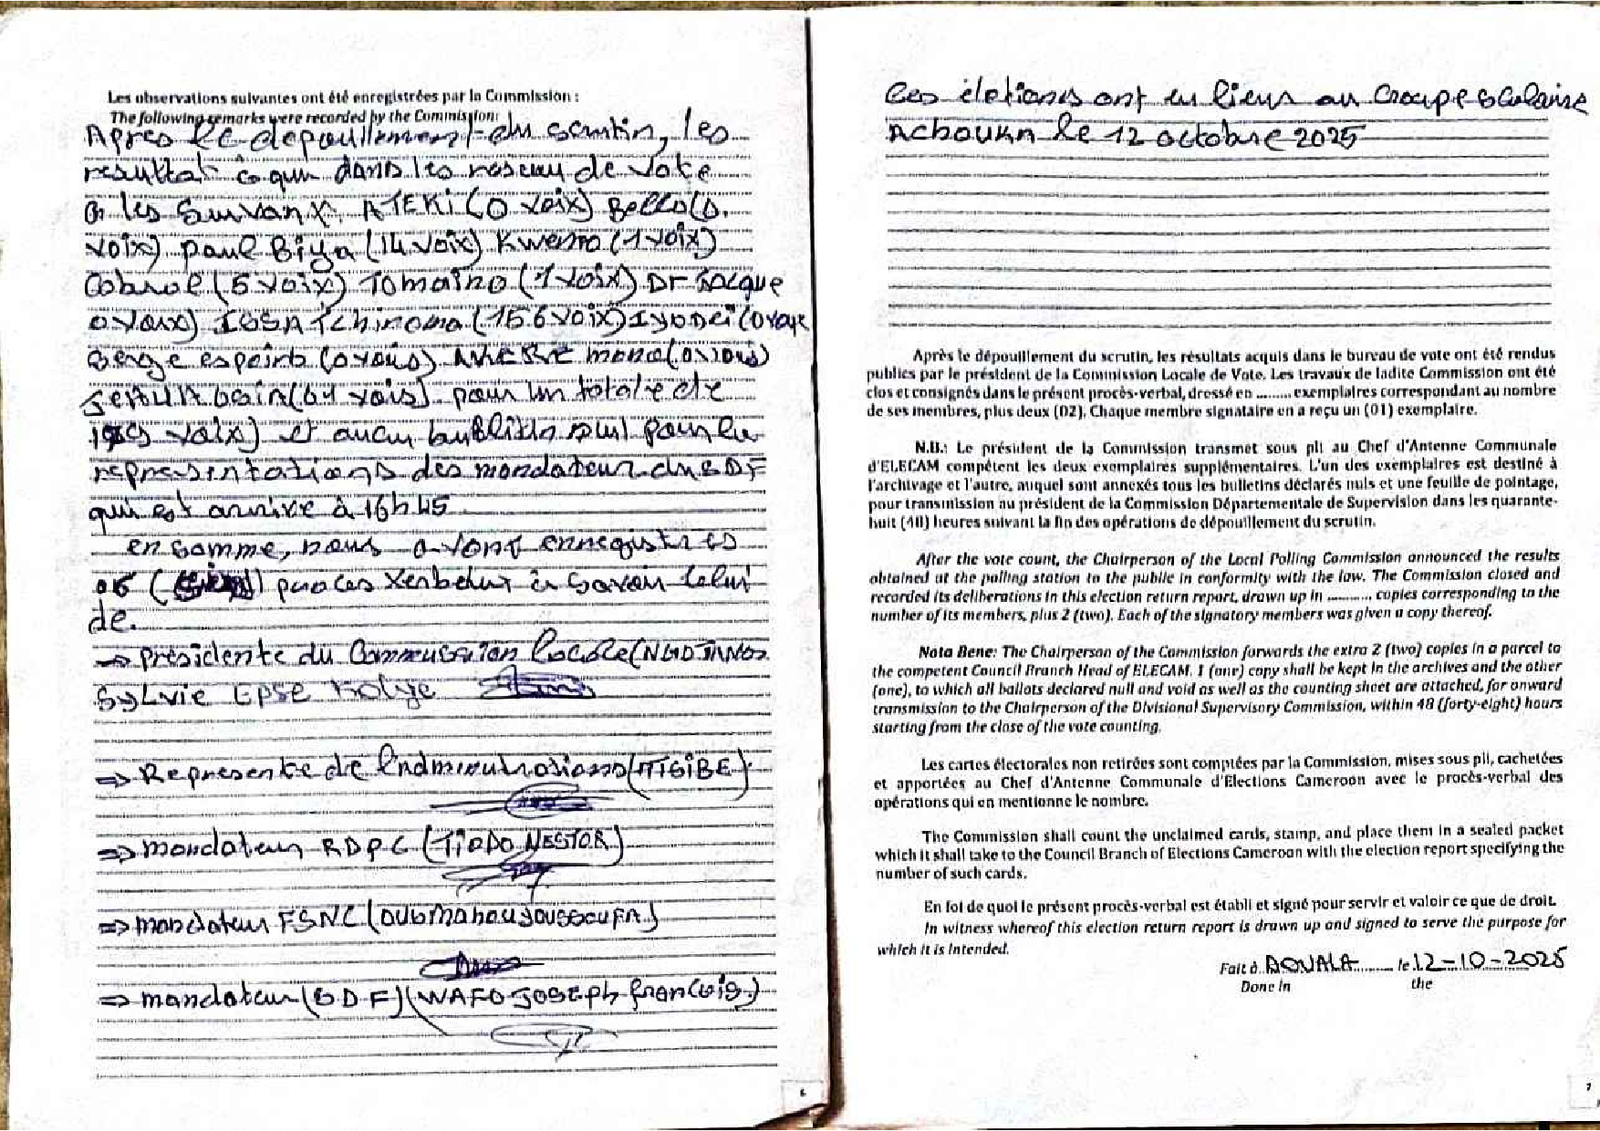 Les observations suivantes ont été enregistrées par la Commission :
The following remarks were recorded by the Commission:
Après le dépouillement du scrutin, les
resultat dans les de vote
les Suivant ATEKI (0 voix) Bello (0
voix) Paul Biya (14 voix) Kwemo (1 voix)
Cabral (5 voix) Tomaïno (1 voix) Dr Jacque
0 voix) ISSA Tchiroma (156 voix) Iyodi (0 voix
espoirs (0 voix)
pour un totale de
voix) et aucun nul pour le
representations des mandateur du SDF
qui est arrivé à 16h45
en somme, nous avont ennegistres
06 ( ) à savoir celui
de.
→ présidente du Commission locale (
Sylvie Epse
⇒ Représente de
⇒ mandateur RDPC (TIADO NESTOR)
⇒ mandateur FSNC (
⇒ mandateur (SDF) (WAFO Joseph françois)
6
Ces életions ont eu lieux au Groupe scolaire
le 12 octobre 2025
Après le dépouillement du scrutin, les résultats acquis dans le bureau de vote ont été rendus
publics par le président de la Commission Locale de Vote. Les travaux de ladite Commission ont été
clos et consignés dans le présent procès-verbal, dressé en ......... exemplaires correspondant au nombre
de ses membres, plus deux (02). Chaque membre signataire en a reçu un (01) exemplaire.
N.B.: Le président de la Commission transmet sous pli au Chef d'Antenne Communale
d'ELECAM compétent les deux exemplaires supplémentaires. L'un des exemplaires est destiné à
l'archivage et l'autre, auquel sont annexés tous les bulletins déclarés nuls et une feuille de pointage,
pour transmission au président de la Commission Départementale de Supervision dans les quarante-
huit (48) heures suivant la fin des opérations de dépouillement du scrutin.
After the vote count, the Chairperson of the Local Polling Commission announced the results
obtained at the polling station to the public in conformity with the law. The Commission closed and
recorded its deliberations in this election return report, drawn up in .......... copies corresponding to the
number of its members, plus 2 (two). Each of the signatory members was given a copy thereof.
Nota Bene: The Chairperson of the Commission forwards the extra 2 (two) copies in a parcel to
the competent Council Branch Head of ELECAM. 1 (one) copy shall be kept in the archives and the other
(one), to which all ballots declared null and void as well as the counting sheet are attached, for onward
transmission to the Chairperson of the Divisional Supervisory Commission, within 48 (forty-eight) hours
starting from the close of the vote counting.
Les cartes électorales non retirées sont comptées par la Commission, mises sous pli, cachetées
et apportées au Chef d'Antenne Communale d'Elections Cameroon avec le procès-verbal des
opérations qui en mentionne le nombre.
The Commission shall count the unclaimed cards, stamp, and place them in a sealed packet
which it shall take to the Council Branch of Elections Cameroon with the election report specifying the
number of such cards.
En foi de quoi le présent procès-verbal est établi et signé pour servir et valoir ce que de droit.
In witness whereof this election return report is drawn up and signed to serve the purpose for
which it is intended.
Fait à DOUALA le 12-10-2025
Done in the
7